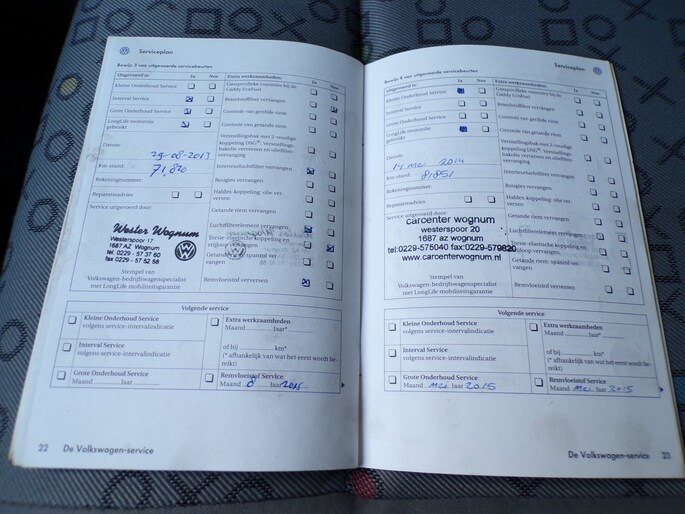 Serviceplan
Bewijs 3 van uitgevoerde servicebeurten
Uitgevoerd is: Ja Nee
Kleine Onderhoud Service
Interval Service
Grote Onderhoud Service
LongLife motorolie
gebruikt
Datum:
29-08-2013
Km-stand:
71,820
Rekeningnummer:
Reparatieadvies
Service uitgevoerd door:
Wester Wognum
Westerspoor 17
1687 AZ Wognum
tel. 0229 - 57 37 60
fax 0229 - 57 52 58
Stempel van
Volkswagen-bedrijfswagenspecialist
met LongLife mobiliteitsgarantie
Extra werkzaamheden: Ja Nee
Gasspecifieke controles bij de
Caddy EcoFuel
Brandstoffilter vervangen
Controle van geribde riem
Controle van getande riem
Versnellingsbak met 2-voudige
koppeling DSG®: Versnellings-
bakolie verversen en oliefilter-
vervanging
Interieurluchtfilter vervangen
Bougies vervangen
Haldex-koppeling: olie ver-
versen
Getande riem vervangen
Luchtfilterelement vervangen
Torsie-elastische koppeling en
vrijloop vervangen
Remvloeistof verversen
Volgende service
Kleine Onderhoud Service
volgens service-intervalindicatie
Interval Service
volgens service-intervalindicatie
Grote Onderhoud Service
Maand Jaar
Extra werkzaamheden
Maand Jaar*
of bij km*
(* afhankelijk van wat het eerst wordt be-
reikt)
Remvloeistof Service
Maand 8 Jaar 2015
22 De Volkswagen-service
Serviceplan
Bewijs 4 van uitgevoerde servicebeurten
Uitgevoerd is: Ja Nee
Kleine Onderhoud Service
Interval Service
Grote Onderhoud Service
LongLife motorolie
gebruikt
Datum:
14 mei 2014
Km-stand:
81851
Rekeningnummer:
Reparatieadvies
Service uitgevoerd door:
carcenter wognum
westerspoor 20
1687 az wognum
tel:0229-575040 fax:0229-579820
www.carcenterwognum.nl
Stempel van
Volkswagen-bedrijfswagenspecialist
met LongLife mobiliteitsgarantie
Extra werkzaamheden: Ja Nee
Gasspecifieke controles bij de
Caddy EcoFuel
Brandstoffilter vervangen
Controle van geribde riem
Controle van getande riem
Versnellingsbak met 2-voudige
koppeling DSG®: Versnellings-
bakolie verversen en oliefilter-
vervanging
Interieurluchtfilter vervangen
Bougies vervangen
Haldex-koppeling: olie ver-
versen
Getande riem vervangen
Luchtfilterelement vervangen
Torsie-elastische koppeling en
vrijloop vervangen
Getande riem: spanrol ver-
vangen
Remvloeistof verversen
Volgende service
Kleine Onderhoud Service
volgens service-intervalindicatie
Interval Service
volgens service-intervalindicatie
Grote Onderhoud Service
Maand Mei Jaar 2015
Extra werkzaamheden
Maand Jaar
of bij km*
(* afhankelijk van wat het eerst wordt be-
reikt)
Remvloeistof Service
Maand Mei Jaar 2015
De Volkswagen-service 23